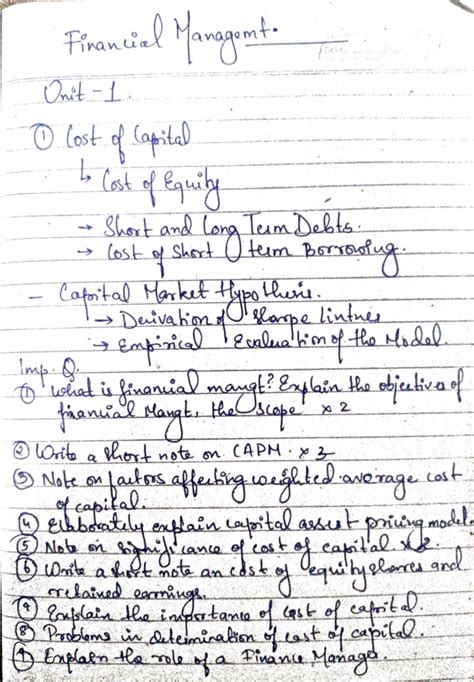 Financial Managemt.
Unit - 1.
① Cost of Capital
↳ Cost of Equity
→ Short and Long Term Debts.
→ Cost of Short term Borrowing.
- Capital Market Hypothesis.
→ Derivation of Sharpe lintner
→ Empirical Evaluation of the Model.
Imp. Q.
① What is financial mangt? Explain the objectives of
financial Mangt, the Scope x 2
② Write a short note on CAPM. x 3
③ Note on factors affecting weighted average cost
of capital.
④ Elaborately explain capital asset pricing model.
⑤ Note on significance of cost of capital x 2.
⑥ Write a short note on cost of equity shares and
retained earnings.
⑦ Explain the importance of cost of capital.
⑧ Problems in determination of cost of capital.
⑨ Explain the role of a Finance Manager.